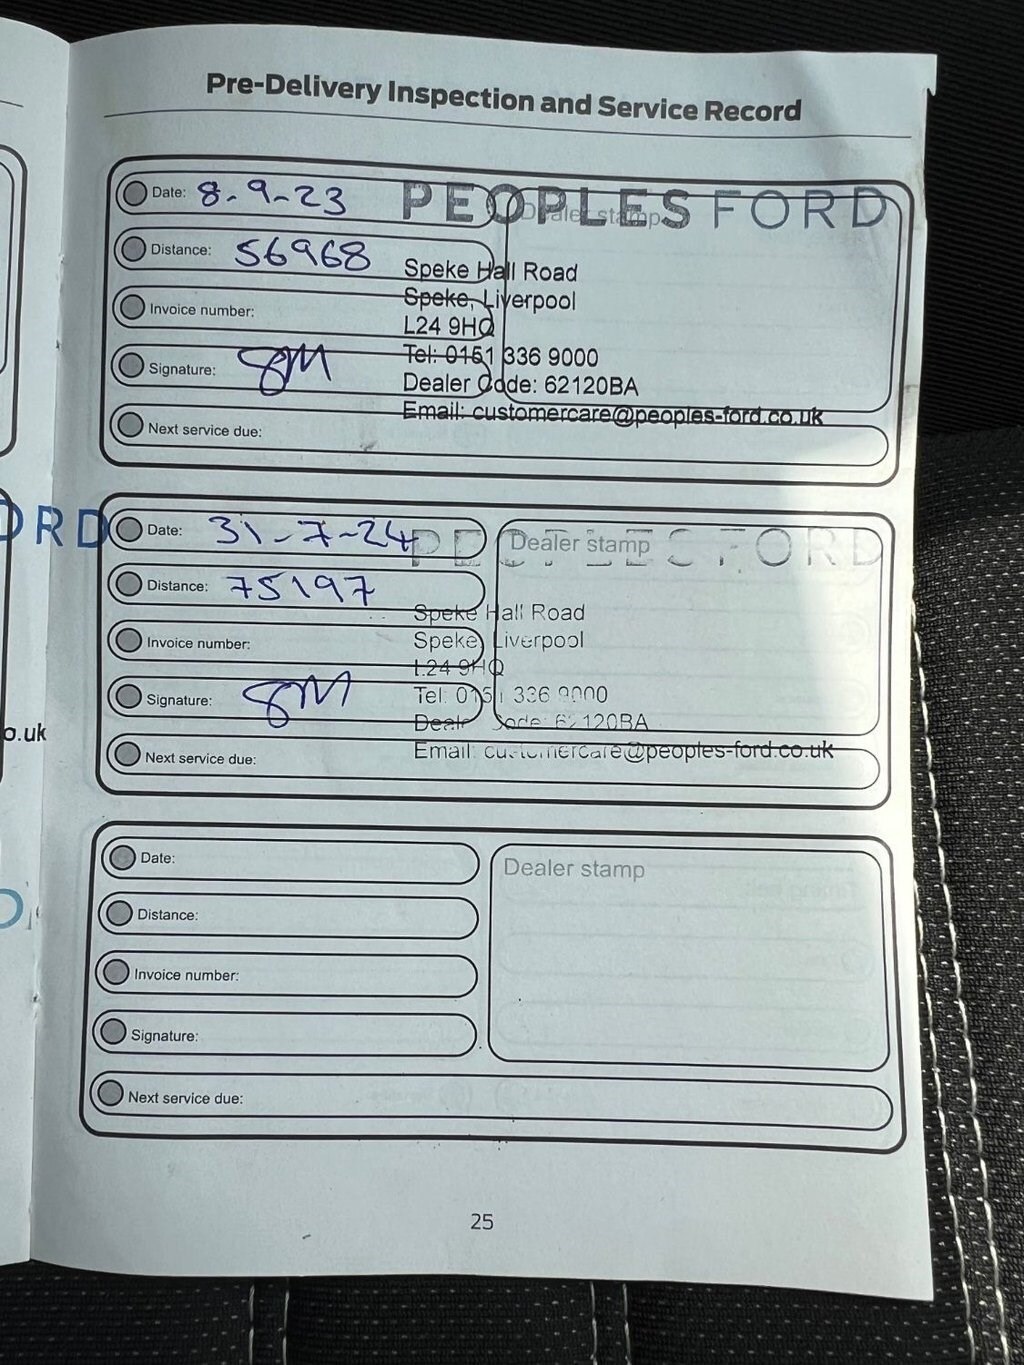 Pre-Delivery Inspection and Service Record
Date: 8-9-23
PEOPLES FORD
Dealer stamp
Distance: 56968
Speke Hall Road
Speke, Liverpool
Invoice number:
L24 9HQ
Tel: 0151 336 9000
Signature: SM
Dealer Code: 62120BA
Email: customercare@peoples-ford.co.uk
Next service due:
ORD
Date: 31-7-24
PEOPLES FORD
Dealer stamp
Distance: 75197
Speke Hall Road
Speke, Liverpool
Invoice number:
L24 9HQ
Tel: 0151 336 9000
Signature: SM
Dealer Code: 62120BA
o.uk
Email: customercare@peoples-ford.co.uk
Next service due:
Date:
Dealer stamp
Distance:
Invoice number:
Signature:
Next service due:
25